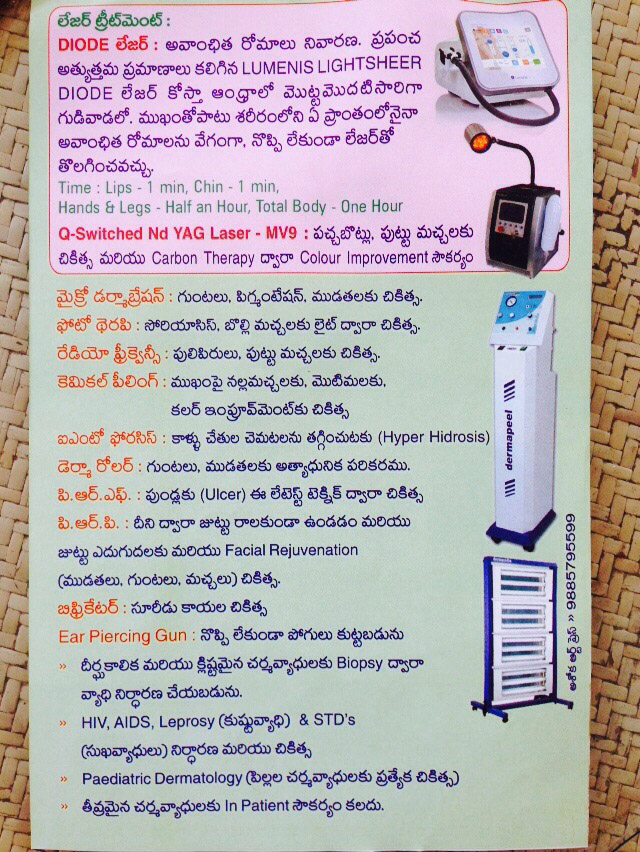 లేజర్ ట్రీట్‌మెంట్ :
DIODE లేజర్ : అవాంఛిత రోమాలు నివారణ. ప్రపంచ
అత్యుత్తమ ప్రమాణాలు కలిగిన LUMENIS LIGHTSHEER
DIODE లేజర్ కోస్తా ఆంధ్రాలో మొట్టమొదటిసారిగా
గుడివాడలో. ముఖంతోపాటు శరీరంలోని ఏ ప్రాంతంలోనైనా
అవాంఛిత రోమాలను వేగంగా, నొప్పి లేకుండా లేజర్‌తో
తొలగించవచ్చు.
Time : Lips - 1 min, Chin - 1 min,
Hands & Legs - Half an Hour, Total Body - One Hour
Q-Switched Nd YAG Laser - MV9 : పచ్చబొట్లు, పుట్టు మచ్చలకు
చికిత్స మరియు Carbon Therapy ద్వారా Colour Improvement సౌకర్యం
మైక్రో డర్మాబ్రేషన్ : గుంటలు, పిగ్మంటేషన్, ముడతలకు చికిత్స.
ఫోటో థెరపి : సోరియాసిస్, బొల్లి మచ్చలకు లైట్ ద్వారా చికిత్స.
రేడియో ఫ్రీక్వెన్సీ : పులిపిరులు, పుట్టు మచ్చలకు చికిత్స.
కెమికల్ పీలింగ్ : ముఖంపై నల్లమచ్చలకు, మొటిమలకు,
కలర్ ఇంప్రూవ్‌మెంట్‌కు చికిత్స
ఐఎంటో ఫోరసిస్ : కాళ్ళు చేతుల చెమటలను తగ్గించుటకు (Hyper Hidrosis)
డెర్మా రోలర్ : గుంటలు, ముడతలకు అత్యాధునిక పరికరము.
పి.ఆర్.ఎఫ్. : పుండ్లకు (Ulcer) ఈ లేటెస్ట్ టెక్నిక్ ద్వారా చికిత్స
పి.ఆర్.పి. : దీని ద్వారా జుట్టు రాలకుండా ఉండడం మరియు
జుట్టు ఎదుగుదలకు మరియు Facial Rejuvenation
(ముడతలు, గుంటలు, మచ్చలు) చికిత్స.
బిఫ్రికేటర్ : సూరీడు కాయల చికిత్స
Ear Piercing Gun : నొప్పి లేకుండా పోగులు కుట్టబడును
» దీర్ఘకాలిక మరియు క్లిష్టమైన చర్మవ్యాధులకు Biopsy ద్వారా
వ్యాధి నిర్ధారణ చేయబడును.
» HIV, AIDS, Leprosy (కుష్టువ్యాధి) & STD's
(సుఖవ్యాధులు) నిర్ధారణ మరియు చికిత్స
» Paediatric Dermatology (పిల్లల చర్మవ్యాధులకు ప్రత్యేక చికిత్స)
» తీవ్రమైన చర్మవ్యాధులకు In Patient సౌకర్యం కలదు.
dermapeel
అశోక ఆర్ట్ ప్రెస్ » 9885795599